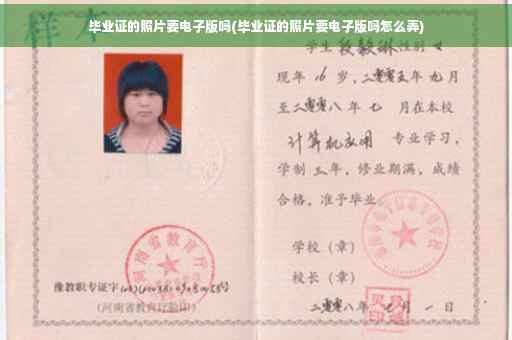 毕业证的照片要电子版吗(毕业证的照片要电子版吗怎么弄)
样本
学生 段毅琳 性别 女
现年 16 岁，二零零五年 九月
至二零零八年 七 月在本校
计算机应用 专业学习，
学制 三年，修业期满，成绩
合格，准予毕业。
学校（章）
河南省教育厅
校长（章）
豫教职专证字
(河南省教育厅验印)
二零零八年 七 月 一 日